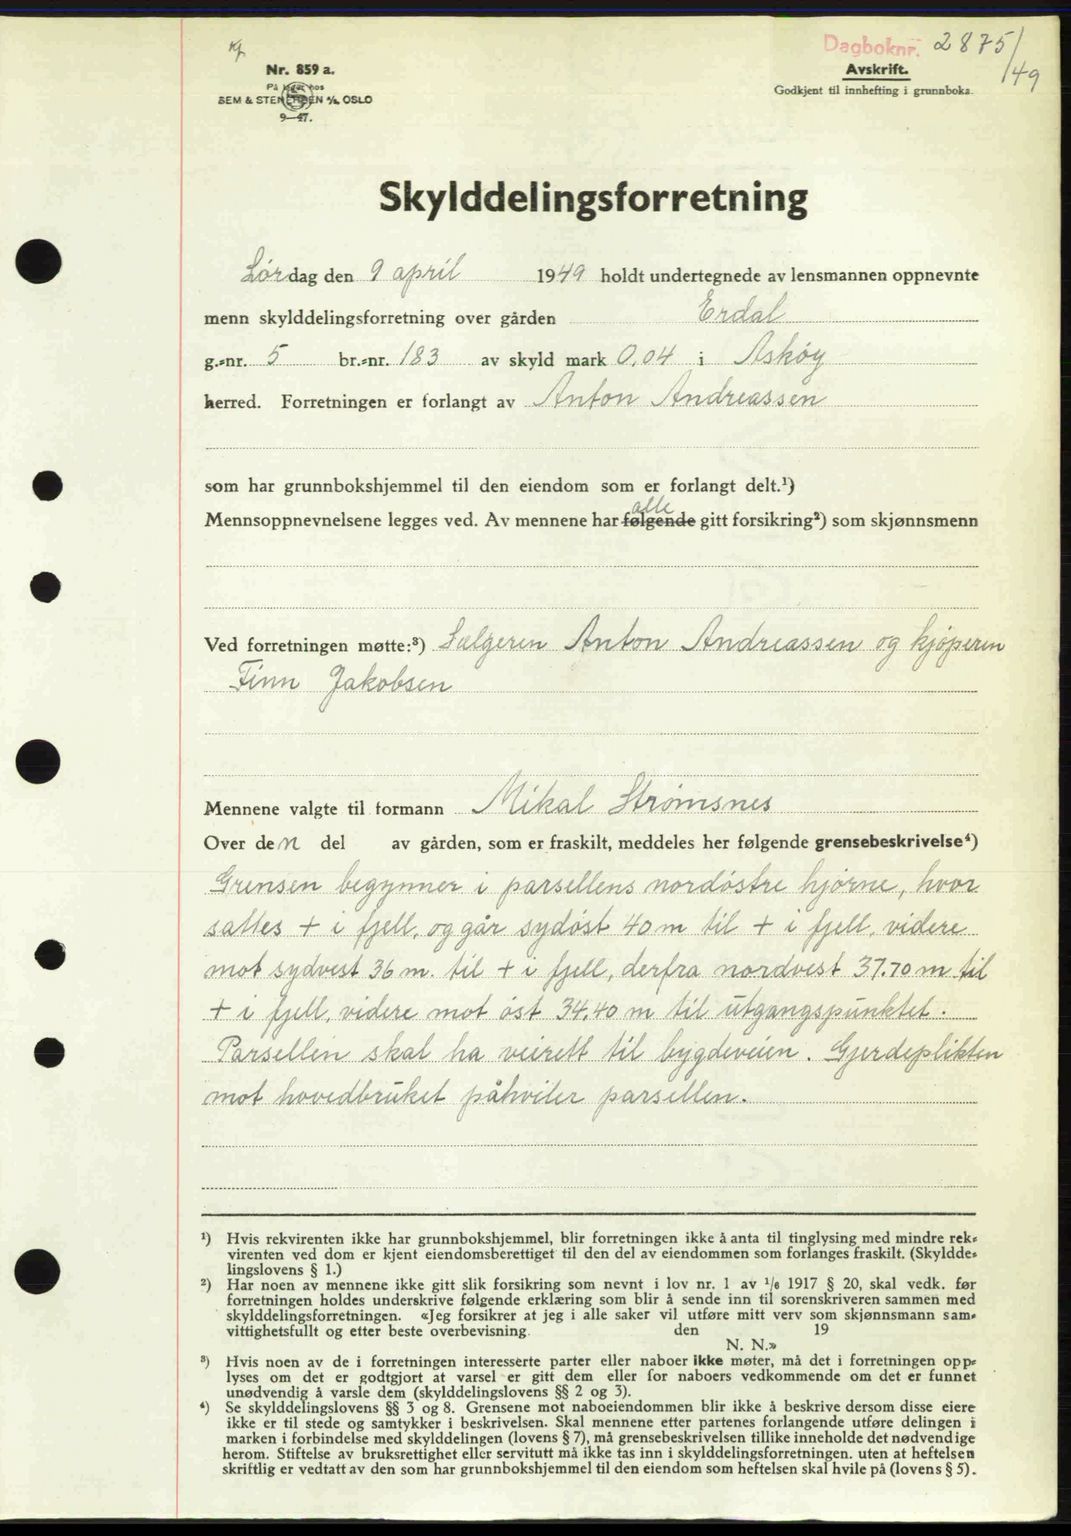 Dagboknr. 2875/49
Nr. 859 a.
På lager hos
SEM & STENERSEN A/S, OSLO
9—47.
Avskrift.
Godkjent til innhefting i grunnboka.
Skylddelingsforretning
Lørdag den 9 april 1949 holdt undertegnede av lensmannen oppnevnte
menn skylddelingsforretning over gården Erdal
g.-nr. 5 br.-nr. 183 av skyld mark 0,04 i Askøy
herred. Forretningen er forlangt av Anton Andreassen
som har grunnbokshjemmel til den eiendom som er forlangt delt.¹)
alle
Mennsoppnevnelsene legges ved. Av mennene har følgende gitt forsikring²) som skjønnsmenn
Ved forretningen møtte:³) Selgeren Anton Andreassen og kjøperen
Finn Jakobsen
Mennene valgte til formann Mikal Strømsnes
Over den del av gården, som er fraskilt, meddeles her følgende grensebeskrivelse⁴)
Grensen begynner i parsellens nordøstre hjørne, hvor
sattes + i fjell, og går sydøst 40 m til + i fjell, videre
mot sydvest 36 m. til + i fjell, derfra nordvest 37.70 m til
+ i fjell, videre mot øst 34,40 m til utgangspunktet.
Parsellen skal ha veirett til bygdeveien. Gjerdeplikten
mot hovedbruket påhviler parsellen.
¹) Hvis rekvirenten ikke har grunnbokshjemmel, blir forretningen ikke å anta til tinglysing med mindre rek-
virenten ved dom er kjent eiendomsberettiget til den del av eiendommen som forlanges fraskilt. (Skyldde-
lingslovens § 1.)
²) Har noen av mennene ikke gitt slik forsikring som nevnt i lov nr. 1 av 1/6 1917 § 20, skal vedk. før
forretningen holdes underskrive følgende erklæring som blir å sende inn til sorenskriveren sammen med
skylddelingsforretningen. «Jeg forsikrer at jeg i alle saker vil utføre mitt verv som skjønnsmann sam-
vittighetsfullt og etter beste overbevisning. den 19
N. N.»
³) Hvis noen av de i forretningen interesserte parter eller naboer ikke møter, må det i forretningen opp-
lyses om det er godtgjort at varsel er gitt dem eller for naboers vedkommende om det er funnet
unødvendig å varsle dem (skylddelingslovens §§ 2 og 3).
⁴) Se skylddelingslovens §§ 3 og 8. Grensene mot naboeiendommen blir ikke å beskrive dersom disse eiere
ikke er til stede og samtykker i beskrivelsen. Skal mennene etter partenes forlangende utføre delingen i
marken i forbindelse med skylddelingen (lovens § 7), må grensebeskrivelsen tillike inneholde det nødvendige
herom. Stiftelse av bruksrettighet eller servitutt må ikke tas inn i skylddelingsforretningen. uten at heftelsen
skriftlig er vedtatt av den som har grunnbokshjemmel til den eiendom som heftelsen skal hvile på (lovens § 5).